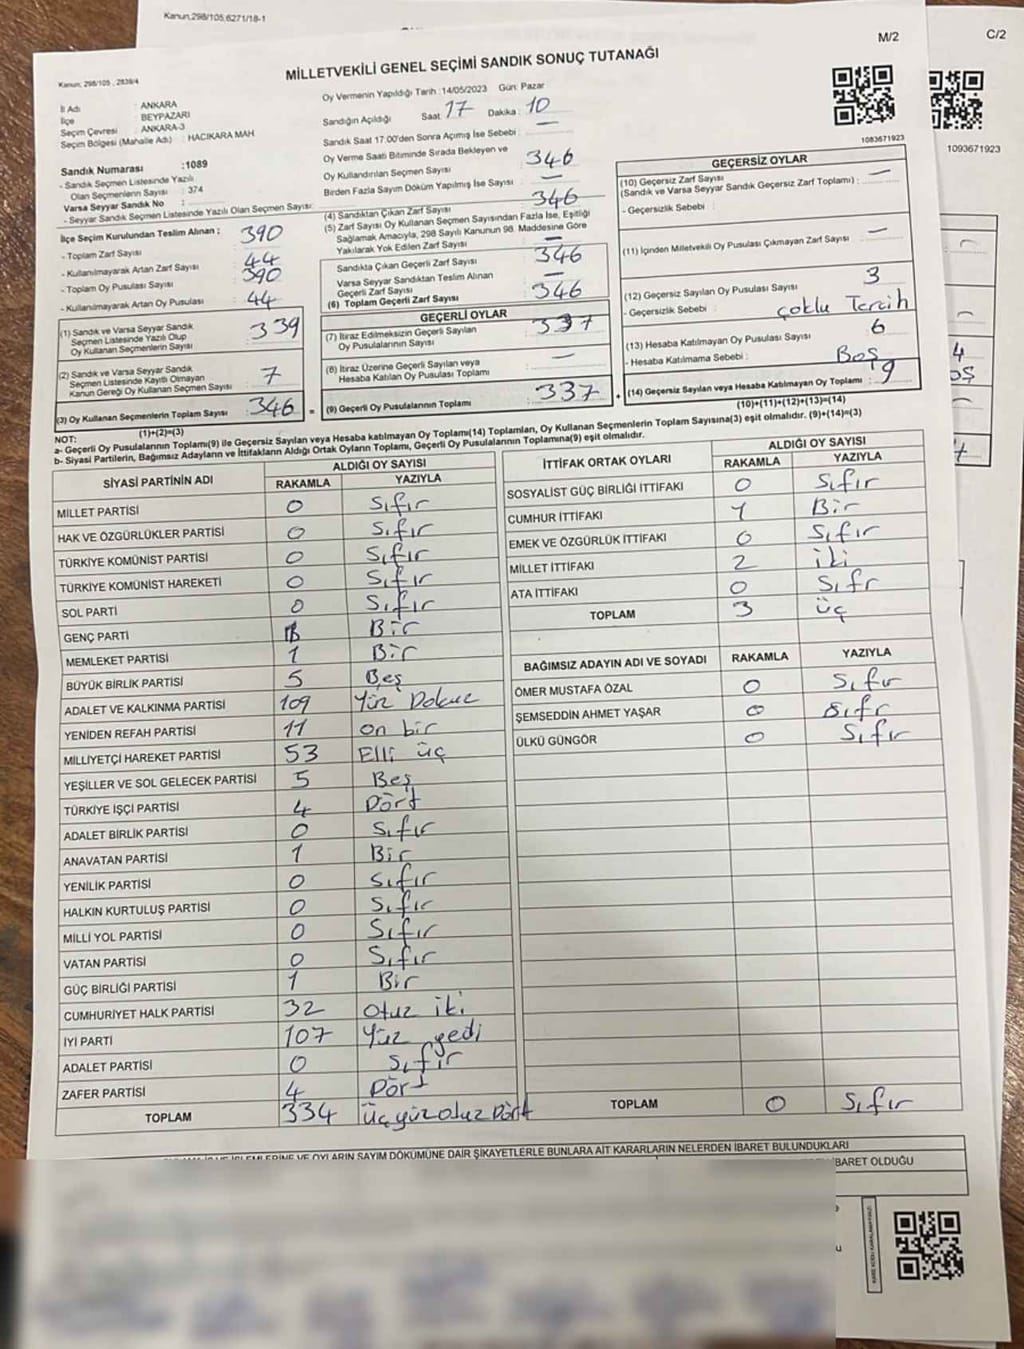 Kanun;298/105;6271/18-1
C/2
1093671923
4
M/2
Kanun; 298/105 , 2839/4
MİLLETVEKİLİ GENEL SEÇİMİ SANDIK SONUÇ TUTANAĞI
1083671923
İl Adı : ANKARA
İlçe : BEYPAZARI
Seçim Çevresi : ANKARA-3
Seçim Bölgesi (Mahalle Adı) : HACIKARA MAH
Sandık Numarası :1089
- Sandık Seçmen Listesinde Yazılı
Olan Seçmenlerin Sayısı : 374
Varsa Seyyar Sandık No :
- Seyyar Sandık Seçmen Listesinde Yazılı Olan Seçmen Sayısı:
İlçe Seçim Kurulundan Teslim Alınan :
- Toplam Zarf Sayısı : 390
- Kullanılmayarak Artan Zarf Sayısı : 44
- Toplam Oy Pusulası Sayısı : 390
- Kullanılmayarak Artan Oy Pusulası : 44
(1) Sandık ve Varsa Seyyar Sandık
Seçmen Listesinde Yazılı Olup
Oy Kullanan Seçmenlerin Sayısı : 339
(2) Sandık ve Varsa Seyyar Sandık
Seçmen Listesinde Kayıtlı Olmayan
Kanun Gereği Oy Kullanan Seçmen Sayısı : 7
(3) Oy Kullanan Seçmenlerin Toplam Sayısı : 346 =
(1)+(2)=(3)
Oy Vermenin Yapıldığı Tarih :14/05/2023 Gün: Pazar
Sandığın Açıldığı Saat : 17 Dakika : 10
Sandık Saat 17.00'den Sonra Açımış İse Sebebi : —
Oy Verme Saati Bitiminde Sırada Bekleyen ve
Oy Kullandırılan Seçmen Sayısı : 346
Birden Fazla Sayım Döküm Yapılmış İse Sayısı : —
(4) Sandıktan Çıkan Zarf Sayısı : 346
(5) Zarf Sayısı Oy Kullanan Seçmen Sayısından Fazla İse, Eşitliği
Sağlamak Amacıyla, 298 Sayılı Kanunun 98. Maddesine Göre
Yakılarak Yok Edilen Zarf Sayısı : —
Sandıkta Çıkan Geçerli Zarf Sayısı : 346
Varsa Seyyar Sandıktan Teslim Alınan
Geçerli Zarf Sayısı : —
(6) Toplam Geçerli Zarf Sayısı : 346
GEÇERLİ OYLAR
(7) İtiraz Edilmeksizin Geçerli Sayılan
Oy Pusulalarının Sayısı : 337
(8) İtiraz Üzerine Geçerli Sayılan veya
Hesaba Katılan Oy Pusulası Toplamı : —
(9) Geçerli Oy Pusulalarının Toplamı : 337 +
GEÇERSİZ OYLAR
(10) Geçersiz Zarf Sayısı
(Sandık ve Varsa Seyyar Sandık Geçersiz Zarf Toplamı) : —
- Geçersizlik Sebebi :
(11) İçinden Milletvekili Oy Pusulası Çıkmayan Zarf Sayısı : —
(12) Geçersiz Sayılan Oy Pusulası Sayısı : 3
- Geçersizlik Sebebi : çoklu Tercih
(13) Hesaba Katılmayan Oy Pusulası Sayısı : 6
- Hesaba Katılmama Sebebi : Boş
(14) Geçersiz Sayılan veya Hesaba Katılmayan Oy Toplamı : 9
(10)+(11)+(12)+(13)=(14)
NOT:
a- Geçerli Oy Pusulalarının Toplamı(9) ile Geçersiz Sayılan veya Hesaba katılmayan Oy Toplamı(14) Toplamları, Oy Kullanan Seçmenlerin Toplam Sayısına(3) eşit olmalıdır. (9)+(14)=(3)
b- Siyasi Partilerin, Bağımsız Adayların ve İttifakların Aldığı Ortak Oyların Toplamı, Geçerli Oy Pusulalarının Toplamına(9) eşit olmalıdır.
SİYASİ PARTİNİN ADI ALDIĞI OY SAYISI
RAKAMLA YAZIYLA
MİLLET PARTİSİ 0 Sıfır
HAK VE ÖZGÜRLÜKLER PARTİSİ 0 Sıfır
TÜRKİYE KOMÜNİST PARTİSİ 0 Sıfır
TÜRKİYE KOMÜNİST HAREKETİ 0 Sıfır
SOL PARTİ 0 Sıfır
GENÇ PARTİ 1 Bir
MEMLEKET PARTİSİ 1 Bir
BÜYÜK BİRLİK PARTİSİ 5 Beş
ADALET VE KALKINMA PARTİSİ 109 Yüz Dokuz
YENİDEN REFAH PARTİSİ 11 on bir
MİLLİYETÇİ HAREKET PARTİSİ 53 Elli üç
YEŞİLLER VE SOL GELECEK PARTİSİ 5 Beş
TÜRKİYE İŞÇİ PARTİSİ 4 Dört
ADALET BİRLİK PARTİSİ 0 Sıfır
ANAVATAN PARTİSİ 1 Bir
YENİLİK PARTİSİ 0 Sıfır
HALKIN KURTULUŞ PARTİSİ 0 Sıfır
MİLLİ YOL PARTİSİ 0 Sıfır
VATAN PARTİSİ 0 Sıfır
GÜÇ BİRLİĞİ PARTİSİ 1 Bir
CUMHURİYET HALK PARTİSİ 32 Otuz iki
İYİ PARTİ 107 Yüz yedi
ADALET PARTİSİ 0 Sıfır
ZAFER PARTİSİ 4 Dört
TOPLAM 334 Üç yüz otuz Dört
İTTİFAK ORTAK OYLARI ALDIĞI OY SAYISI
RAKAMLA YAZIYLA
SOSYALİST GÜÇ BİRLİĞİ İTTİFAKI 0 Sıfır
CUMHUR İTTİFAKI 1 Bir
EMEK VE ÖZGÜRLÜK İTTİFAKI 0 Sıfır
MİLLET İTTİFAKI 2 iki
ATA İTTİFAKI 0 Sıfr
TOPLAM 3 üç
BAĞIMSIZ ADAYIN ADI VE SOYADI RAKAMLA YAZIYLA
ÖMER MUSTAFA ÖZAL 0 Sıfır
ŞEMSEDDİN AHMET YAŞAR 0 Sıfr
ÜLKÜ GÜNGÖR 0 Sıfır
TOPLAM 0 Sıfır
OYLARIN SAYIM DÖKÜMÜNE DAİR ŞİKAYETLERLE BUNLARA AİT KARARLARIN NELERDEN İBARET BULUNDUKLARI
İBARET OLDUĞU